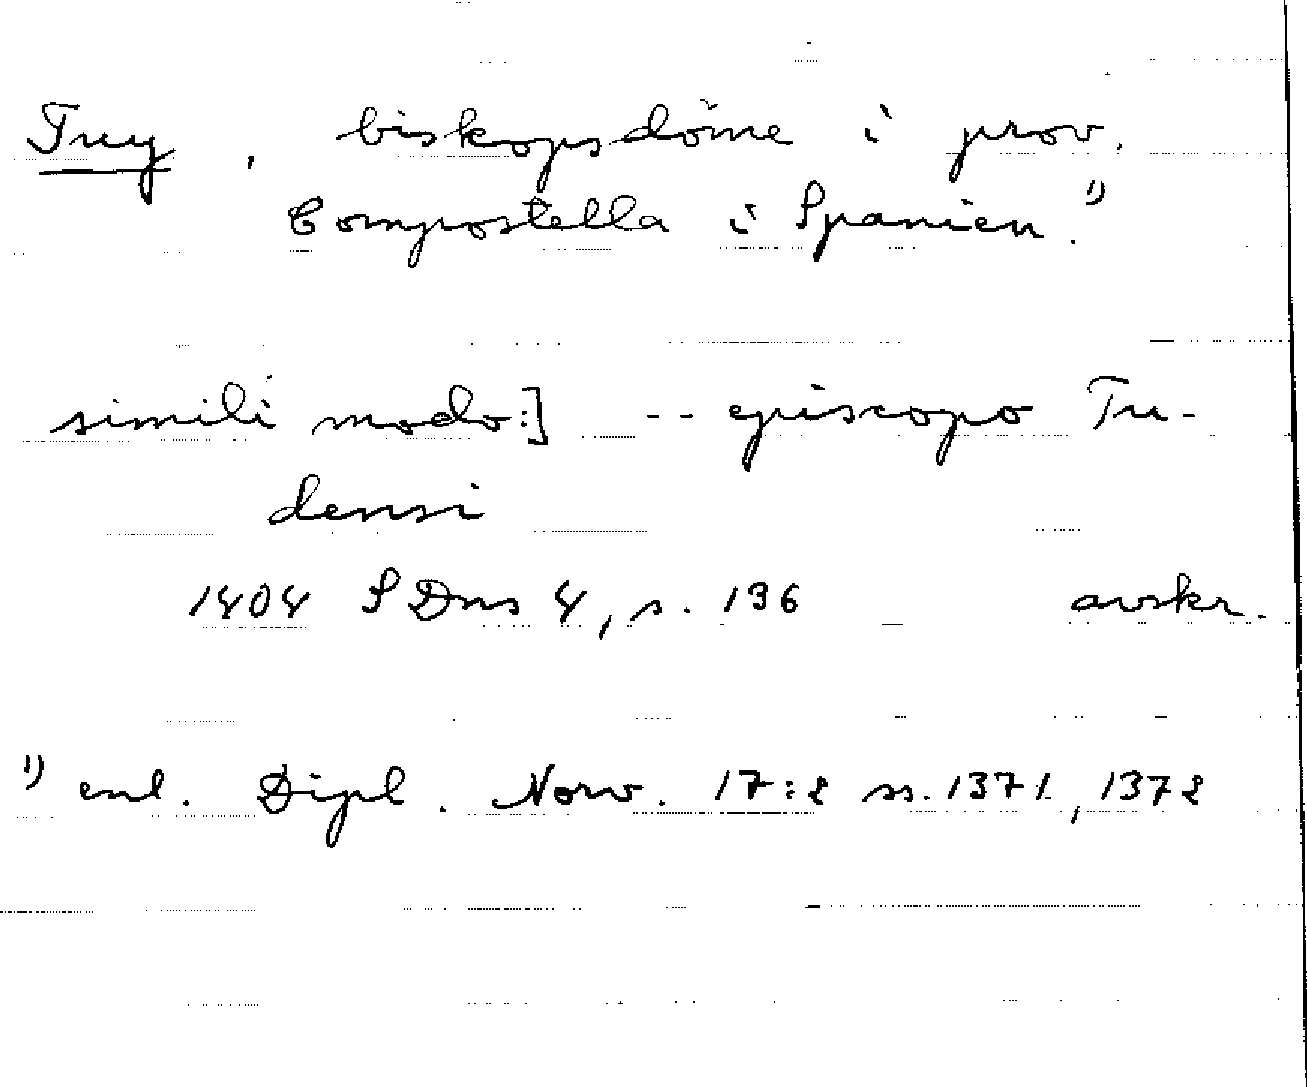 Tuy, biskopsdöme i prov.
Compostella i Spanien.¹⁾
simili modo:] -- episcopo Tu-
densi
1404 SDns 4, s. 136 avskr.
¹⁾ enl. Dipl. Norv. 17:2 ss. 1371, 1372